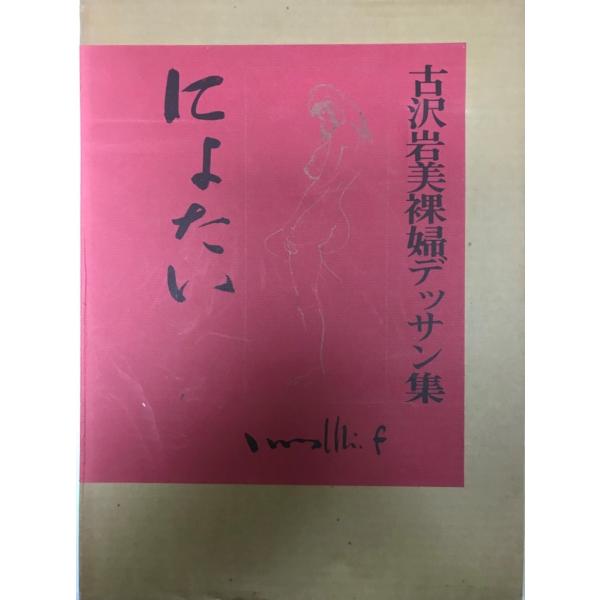 古沢岩美裸婦デッサン集
にょたい